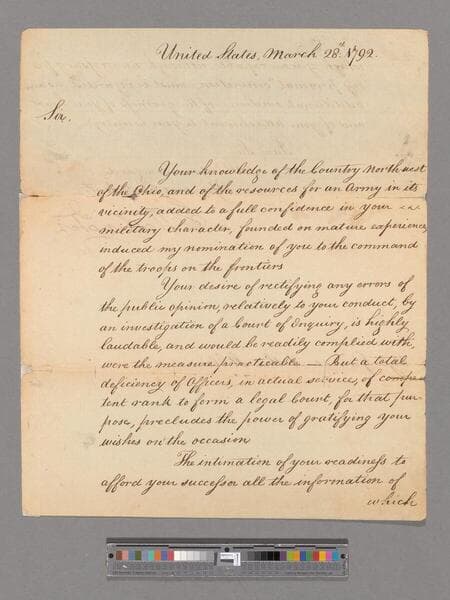 United States, March 28th 1792.
Sir.
Your knowledge of the Country North west
of the Ohio, and of the resources for an Army in its
vicinity, added to a full confidence in your
military character, founded on mature experience,
induced my nomination of you to the command
of the troops on the frontiers
Your desire of rectifying any errors of
the public opinion, relatively to your conduct, by
an investigation of a Court of Enquiry, is highly
laudable, and would be readily complied with,
were the measure practicable — But a total
deficiency of Officers, in actual service, of compe-
tent rank to form a legal Court, for that pur-
pose, precludes the power of gratifying your
wishes on the occasion
The intimation of your readiness to
afford your successor all the information of
which